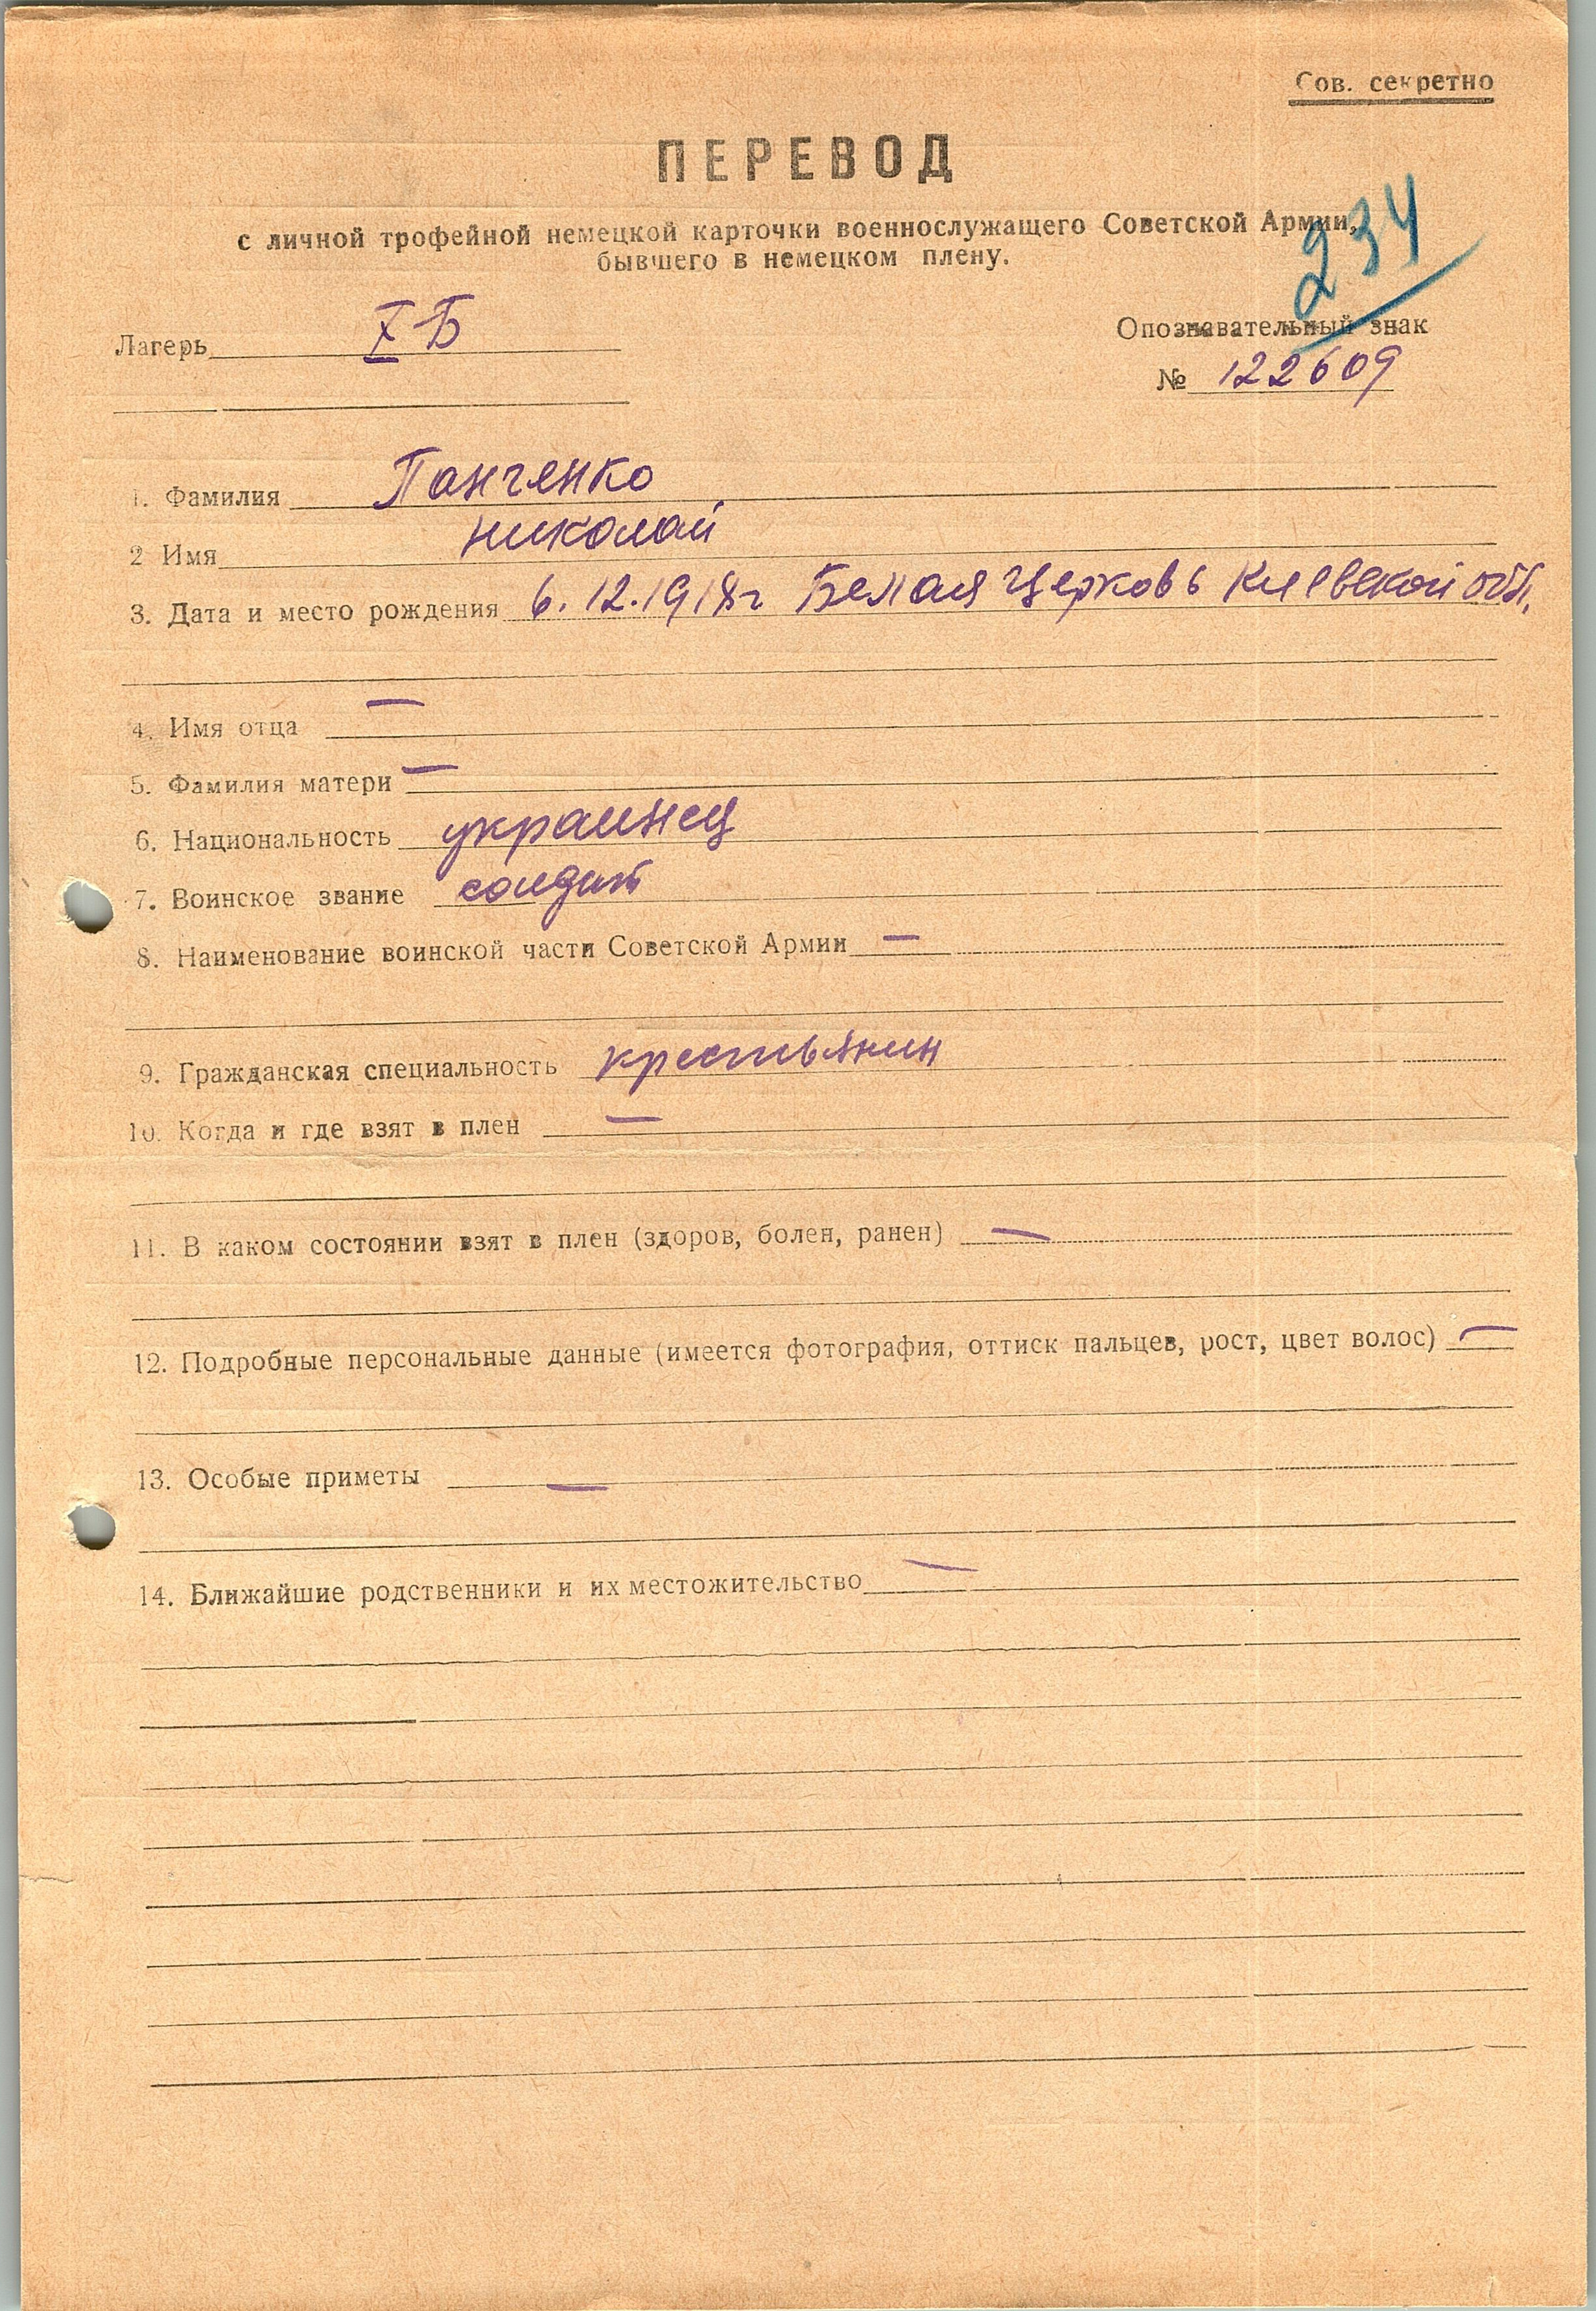 Сов. секретно
ПЕРЕВОД
с личной трофейной немецкой карточки военнослужащего Советской Армии,
бывшего в немецком плену.
234
Лагерь X Б
Опознавательный знак
№ 122609
1. Фамилия Панченко
2 Имя Николай
3. Дата и место рождения 6.12.1918г Белая Церковь Киевской обл.
4. Имя отца —
5. Фамилия матери —
6. Национальность украинец
7. Воинское звание солдат
8. Наименование воинской части Советской Армии —
9. Гражданская специальность крестьянин
10. Когда и где взят в плен —
11. В каком состоянии взят в плен (здоров, болен, ранен) —
12. Подробные персональные данные (имеется фотография, оттиск пальцев, рост, цвет волос) —
13. Особые приметы —
14. Ближайшие родственники и их местожительство —